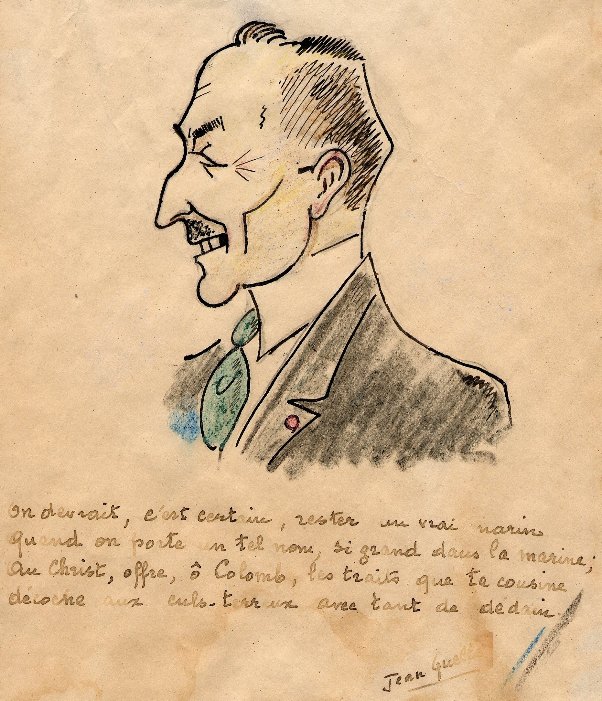 On devrait, c'est certain, rester un vrai marin
quand on porte un tel nom, si grand dans la marine;
Au Christ, offre, ô Colomb, les traits que ta cousine
décoche aux culs-terreux avec tant de dédain.
Jean